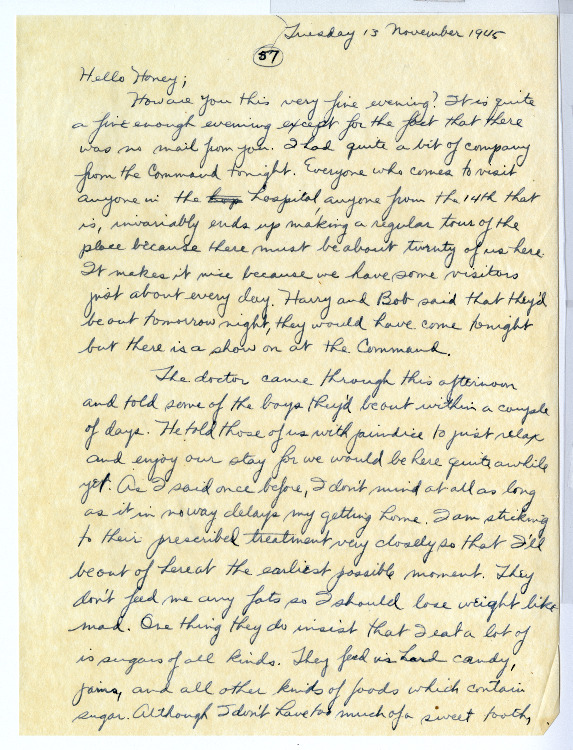 Tuesday 13 November 1945
57
Hello Honey;
How are you this very fine evening? It is quite
a fine enough evening except for the fact that there
was no mail from you. I had quite a bit of company
from the Command tonight. Everyone who comes to visit
anyone in the hosp hospital, anyone from the 14th that
is, invariably ends up making a regular tour of the
place because there must be about twenty of us here.
It makes it nice because we have some visitors
just about every day. Harry and Bob said that they'd
be out tomorrow night, they would have come tonight
but there is a show on at the Command.
The doctor came through this afternoon
and told some of the boys they'd be out within a couple
of days. He told those of us with jaundice to just relax
and enjoy our stay for we would be here quite awhile
yet. As I said once before, I don't mind at all as long
as it in no way delays my getting home. I am sticking
to their prescribed treatment very closely so that I'll
be out of here at the earliest possible moment. They
don't feed me any fats so I should lose weight like
mad. One thing they do insist that I eat a lot of
is sugars of all kinds. They feed us hard candy,
jams, and all other kinds of foods which contain
sugar. Although I don't have too much of a sweet tooth,